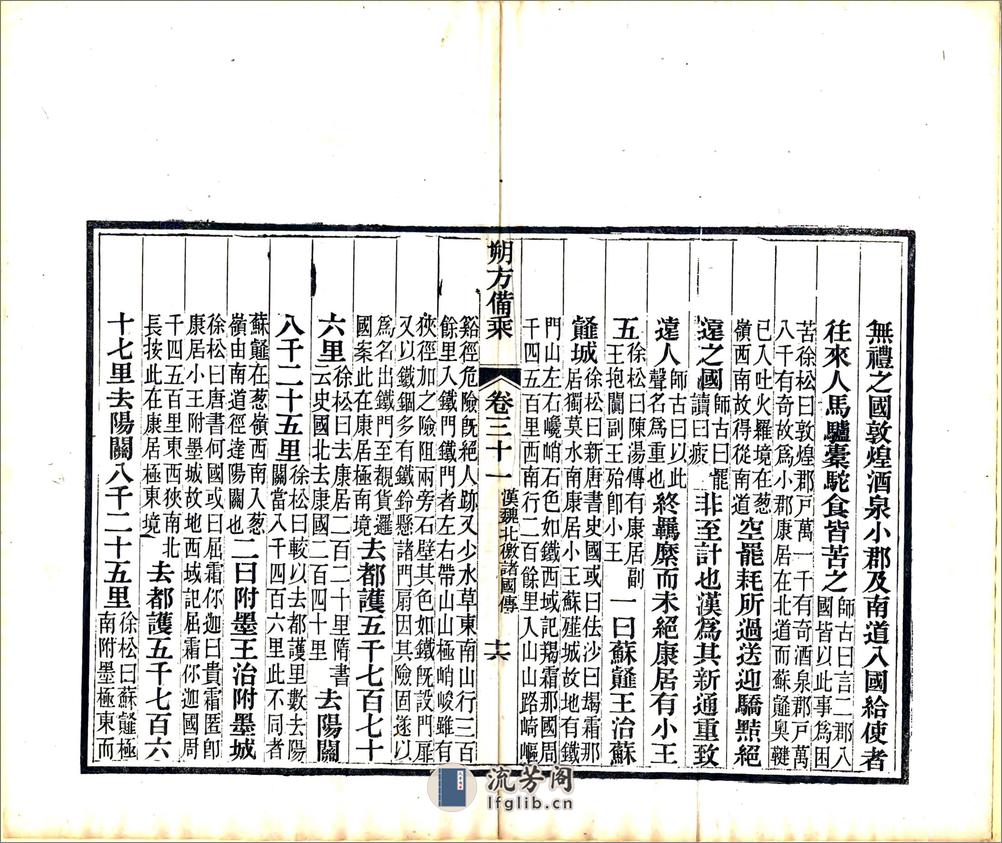 無禮之國敦煌酒泉小郡及南道八國給使者
往來人馬驢橐駝食皆苦之師古曰言二郡八
國皆以此事爲困
苦徐松曰敦煌郡戸萬一千有奇酒泉郡戸萬
八千有奇故爲小郡康居在北道而蘇䪥奥鞬
已入吐火羅境在葱
嶺西南故得從南道空罷耗所過送迎驕黠絕
遠之國師古曰罷
讀曰疲非至計也漢爲其新通重致
遠人師古曰以此
聲名爲重也終羈縻而未絕康居有小王
五徐松曰陳湯傳有康居副
王抱闐副王殆卽小王一曰蘇䪥王治蘇
䪥城徐松曰新唐書史國或曰佉沙曰塲霜那
居獨莫水南康居小王蘇薤城故地有鐵
門山左右巉峭石色如鐵西域記羯霜那國周
千四五百里西南行二百餘里入山山路崎嶇
朔方備乘 卷三十一 漢魏北徼諸國傳 十六
谿徑危險旣絕人跡又少水草東南山行三百
餘里入鐵門鐵門者左右帶山山極峭峻雖有
狹徑加之險阻兩旁石壁其色如鐵旣設門扉
又以鐵錮多有鐵鈴懸諸門扇因其險固遂以
爲名出鐵門至覩貨邏
國案此在康居極南境去都護五千七百七十
六里徐松曰去康居二百二十里隋書
云史國北去康國二百四十里去陽關
八千二十五里徐松曰較以去都護里數去陽
關當八千四百六里此不同者
蘇䪥在葱嶺西南入葱
嶺由南道徑達陽關也二曰附墨王治附墨城
徐松曰唐書何國或曰屈霜你迦曰貴霜匿卽
康居小王附墨城故地西域記屈霜你迦國周
千四五百里東西狹南北
長按此在康居極東境去都護五千七百六
十七里去陽關八千二十五里徐松曰蘇䪥極
南附墨極東而
流芳阁
lfglib.cn